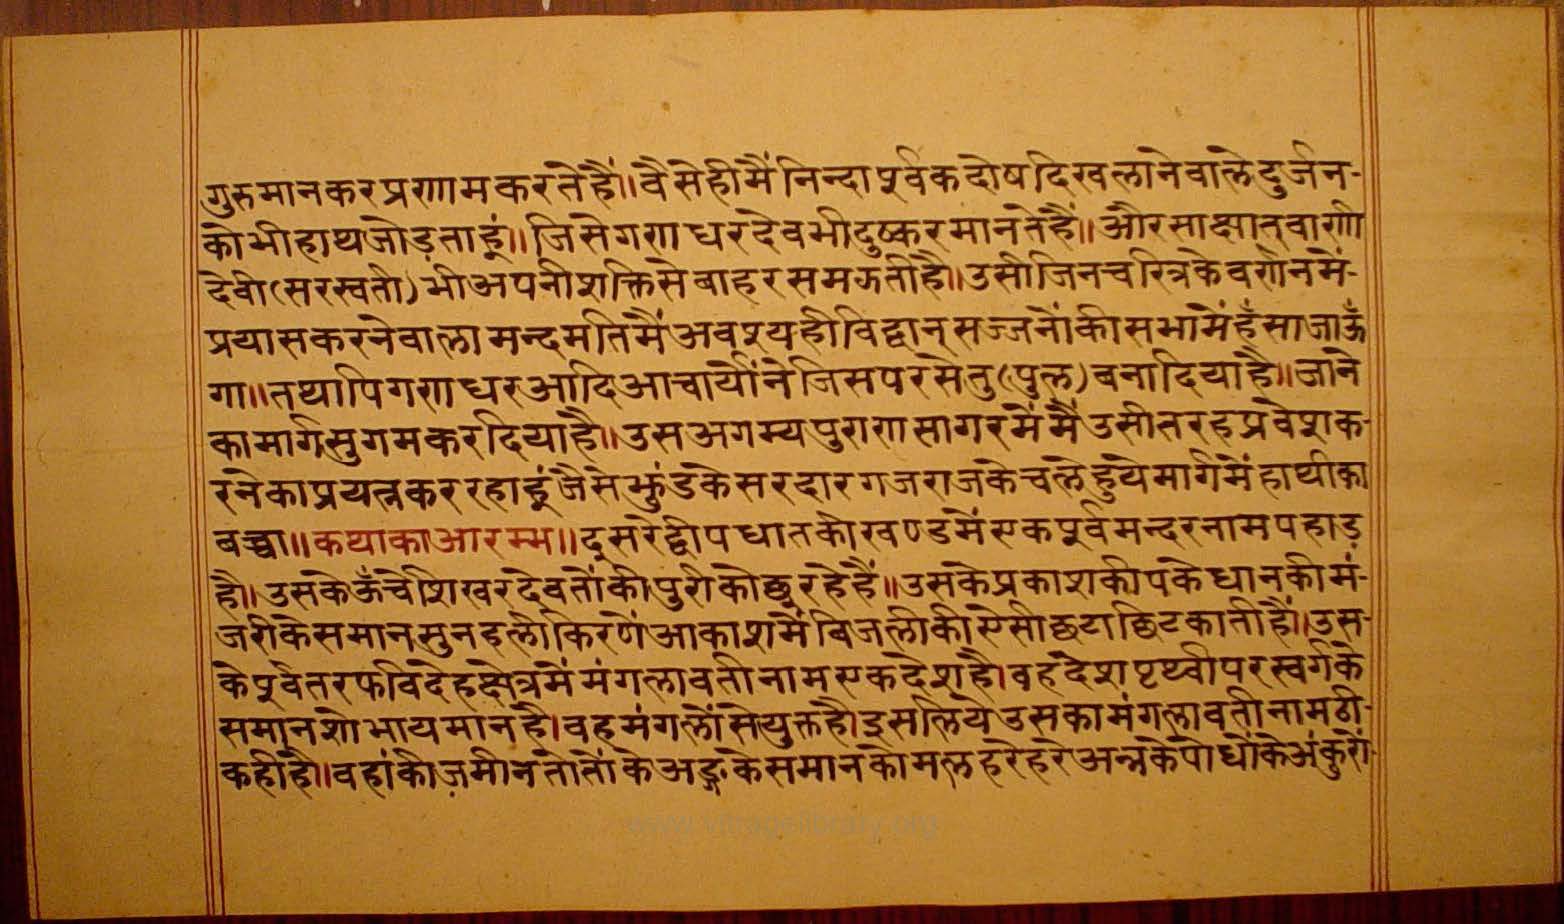 गुरु मान कर प्रणाम करते हैं॥ वैसे ही मैं निन्दा पूर्वक दोष दिखलाने वाले दुर्जन-
को भी हाथ जोड़ता हूं॥ जिसे गणधर देव भी दुष्कर मानते हैं॥ और साक्षात् वाणी
देवी (सरस्वती) भी अपनी शक्ति से बाहर समझती है। उसी जिन चरित्र के वर्णन में-
प्रयास करने वाला मन्द मति मैं अवश्य ही विद्वान् सज्जनों की सभा में हँसा जाऊँ
गा॥ तथापि गणधर आदि आचार्यों ने जिस पर सेतु (पुल) बना दिया है॥ जाने
का मार्ग सुगम कर दिया है॥ उस अगम्य पुराण सागर में मैं उसी तरह प्रवेश क-
रने का प्रयत्न कर रहा हूं जैसे झुंड के सरदार गजराज के चले हुये मार्ग में हाथी का
बच्चा॥ कथा का आरम्भ॥ दूसरे द्वीप धातकी खण्ड में एक पूर्व मन्दर नाम पहाड़
है॥ उसके ऊँचे शिखर देवतों की पुरी को छू रहे हैं॥ उसके प्रकाश की पके धान की मं-
जरी के समान सुनहली किरणें आकाश में बिजली की ऐसी छटा छिटकाती हैं॥ उस-
के पूर्व तरफ विदेह क्षेत्र में मंगलावती नाम एक देश है। वह देश पृथ्वी पर स्वर्ग के
समान शोभायमान है। वह मंगलों से युक्त है। इसलिये उसका मंगलावती नाम ठी-
क ही है॥ वहां की ज़मीन तोतों के अङ्ग के समान कोमल हरे हरे अन्न के पौधों के अंकुरों-
www.vitragelibrary.org